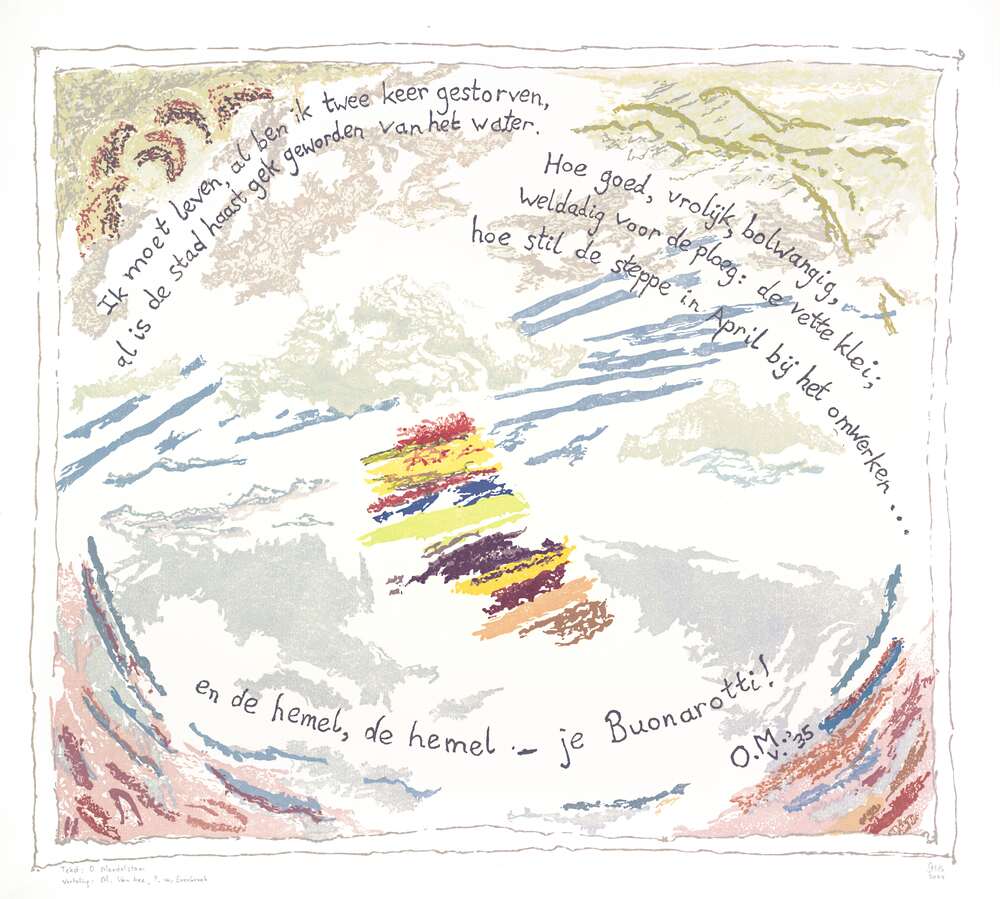 Ik moet leven, al ben ik twee keer gestorven,
al is de stad haast gek geworden van het water.
Hoe goed, vrolijk, bolwangig,
weldadig voor de ploeg: de vette klei;
hoe stil de steppe in April bij het omwerken ...
en de hemel, de hemel – je Buonarotti!
O.M. '35
V.
Tekst: O. Mandelstam
Vertaling: M. Van hee,